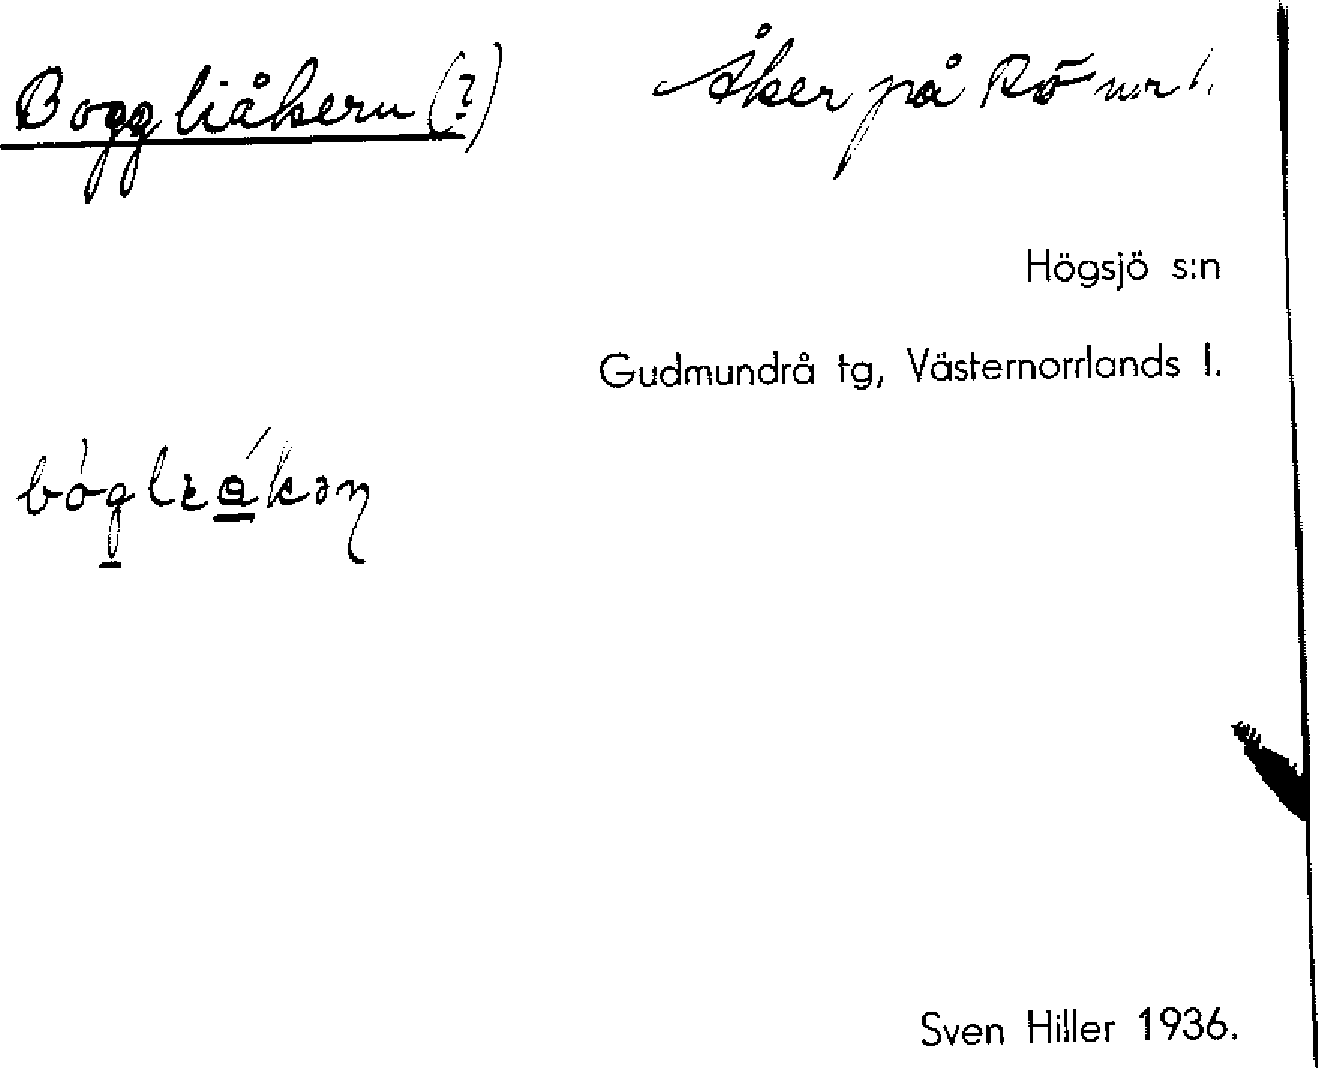 Boggliåkern (?) Åker på Rö nr 1.
Högsjö s:n
Gudmundrå tg, Västernorrlands l.
Sven Hiller 1936.